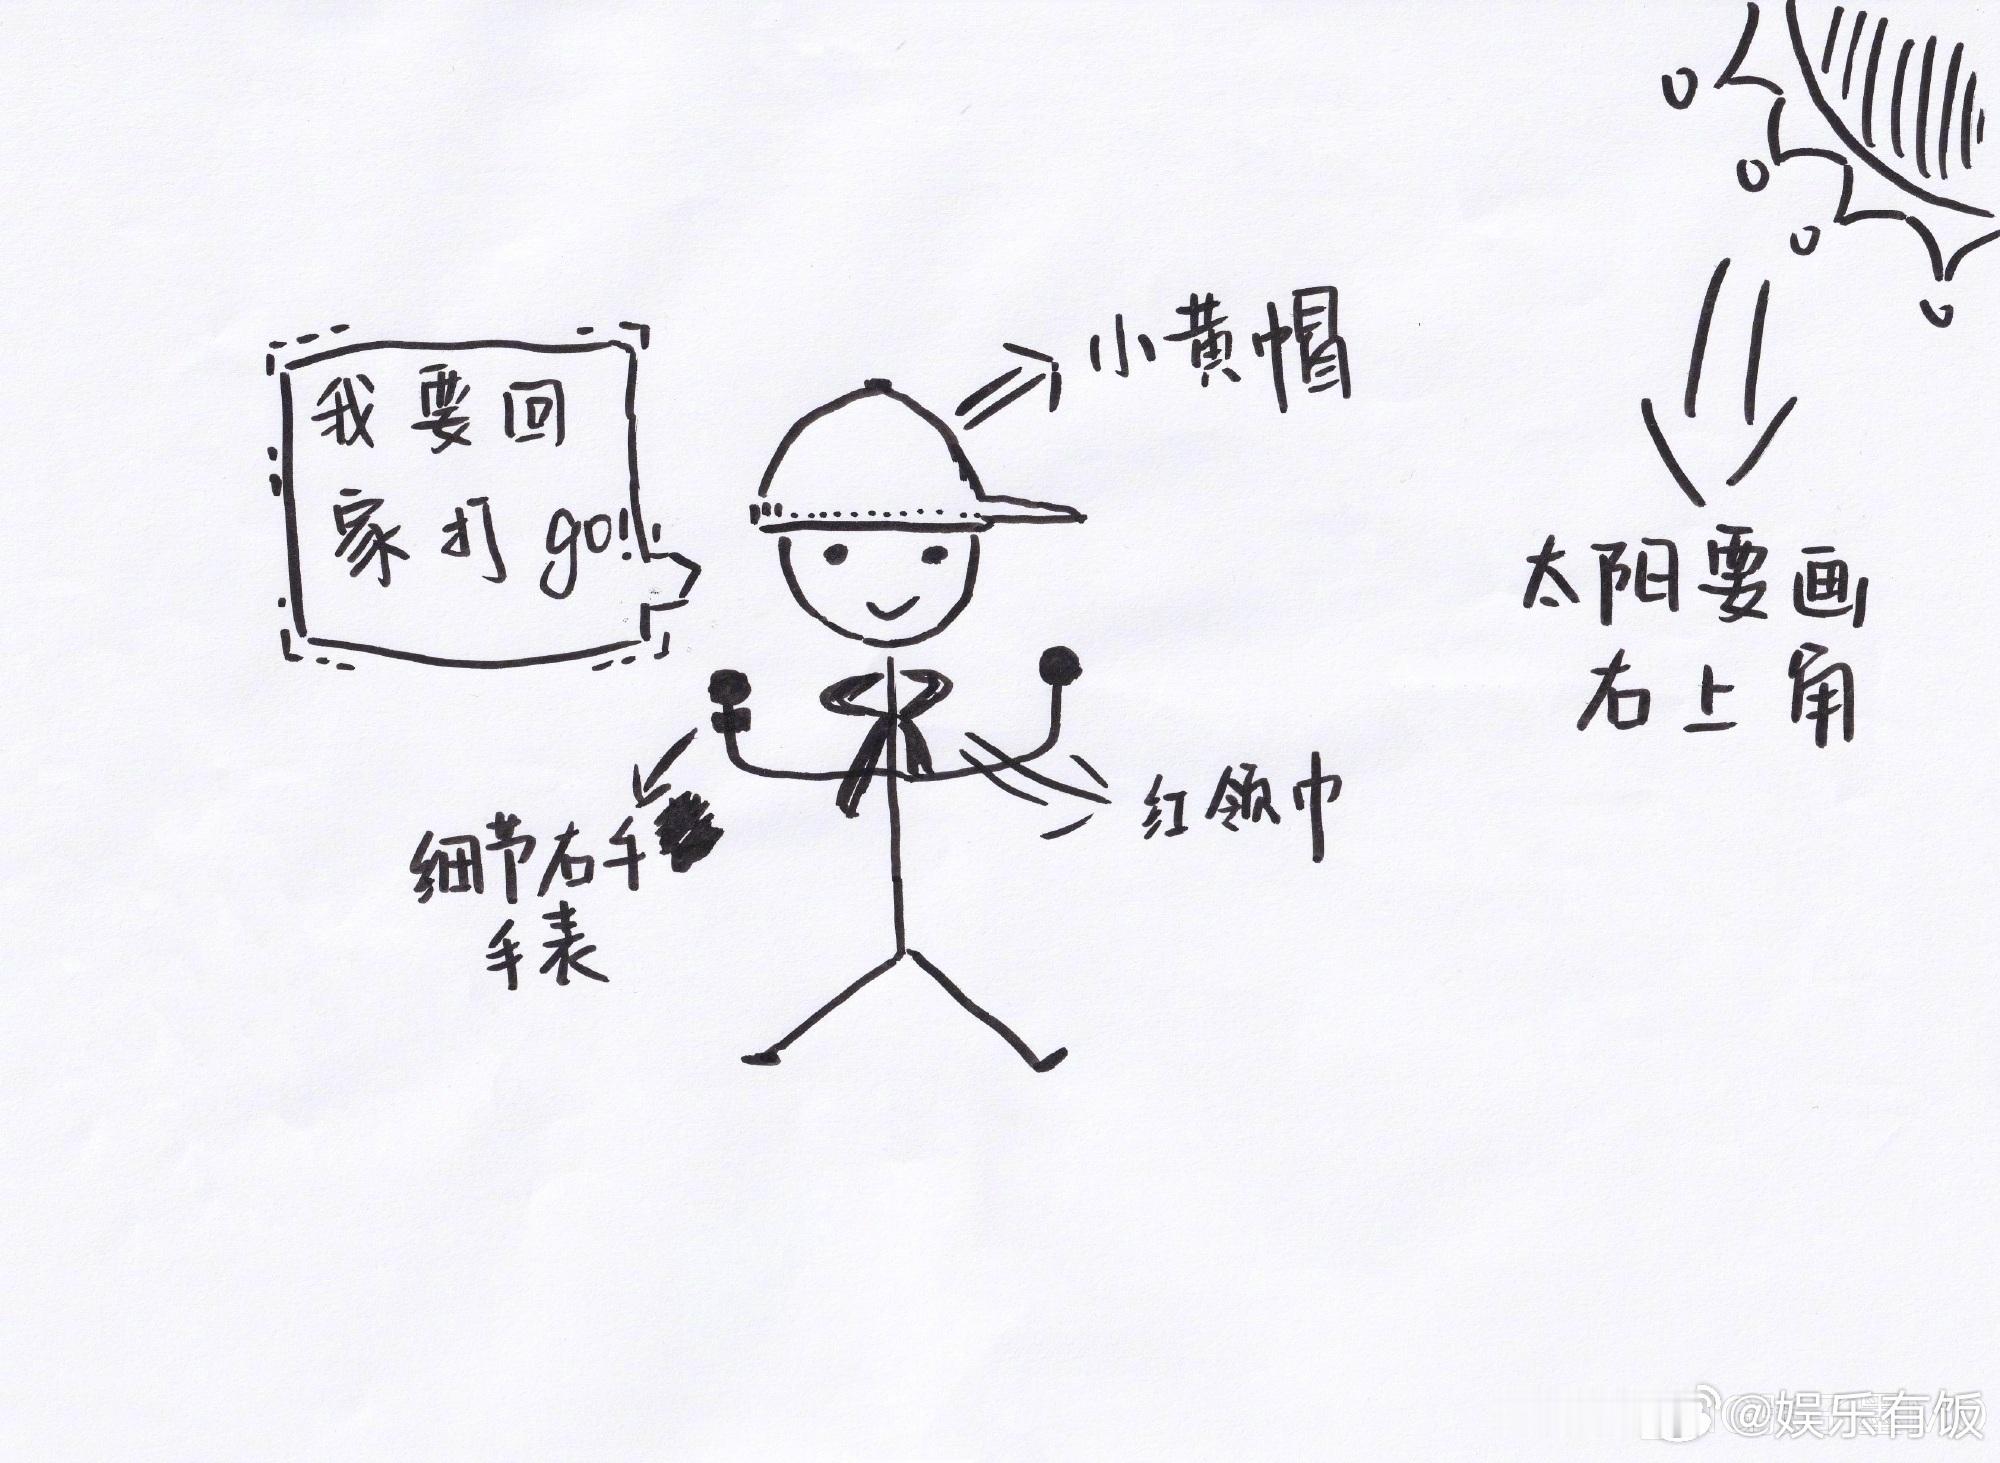 小黄帽
我要回
家打go!
太阳要画
右上角
红领巾
细节右手
手表
@娱乐有饭